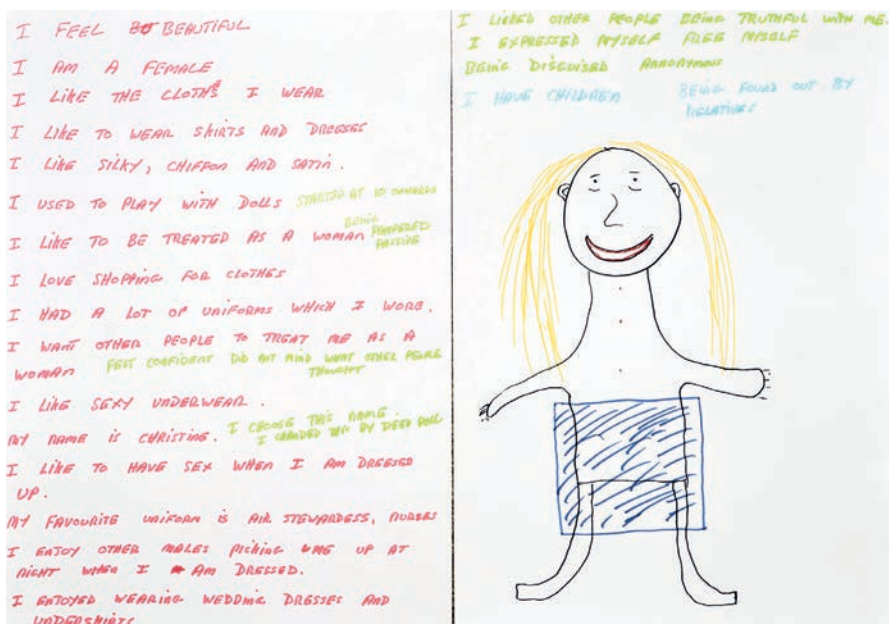 I FEEL BEAUTIFUL
I AM A FEMALE
I LIKE THE CLOTHES I WEAR
I LIKE TO WEAR SHIRTS AND DRESSES
I LIKE SILKY, CHIFFON AND SATIN.
I USED TO PLAY WITH DOLLS STARTED AT 10 ONWARDS
I LIKE TO BE TREATED AS A WOMAN BEING
PAMPERED
PASSIVE
I LOVE SHOPPING FOR CLOTHES
I HAD A LOT OF UNIFORMS WHICH I WORE.
I WANT OTHER PEOPLE TO TREAT ME AS A
WOMAN FELT CONFIDENT DID NOT MIND WHAT OTHER PEOPLE
THOUGHT
I LIKE SEXY UNDERWEAR.
MY NAME IS CHRISTINE. I CHOOSE THIS NAME
I CHANGED THIS BY DEED POLL
I LIKE TO HAVE SEX WHEN I AM DRESSED
UP.
MY FAVOURITE UNIFORM IS AIR STEWARDESS, NURSES
I ENJOY OTHER MALES PICKING ME UP AT
NIGHT WHEN I AM DRESSED.
I ENJOYED WEARING WEDDING DRESSES AND
UNDERSKIRTS
I LIKED OTHER PEOPLE BEING TRUTHFUL WITH ME.
I EXPRESSED MYSELF FREE MYSELF
BEING DISGUISED ANNONYMOUS
I HAVE CHILDREN BEING FOUND OUT BY
RELATIVES